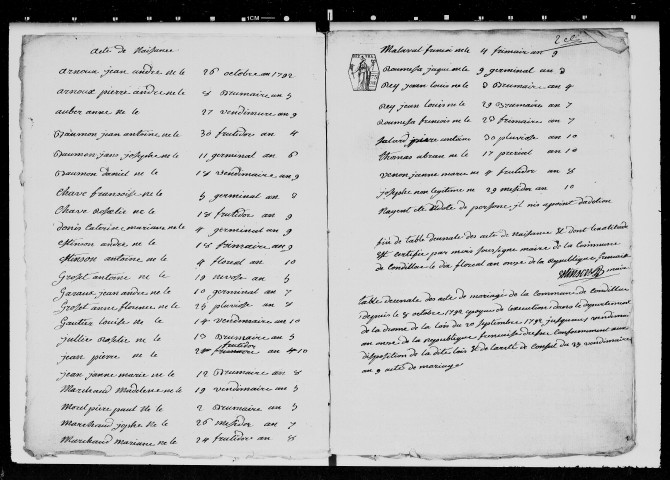 acte de Naissance
arnoux jean andre ne le 26 octobre an 1792
arnoux pierre andre ne le 8 Brumaire an 5
aubert anne ne le 27 vendimiere an 9
Baumon jean antoine ne le 30 frutidor an 4
Baumon jean josephe ne le 11 germinal an 6
Baumon daniel ne le 18 vendimaire an 9
Chave fransoise ne le 5 germinal an 2
Chave Rosalie ne le 18 frutidor an 9
donis Caterine mariane ne le 4 germinal an 9
Estinson andre ne le 18 frimaire an 9
Estinson antoine ne le 4 floreal an 10
Groset antoine ne le 19 nivose an 5
Gavaux jean andre ne le 10 germinal an 7
Groset anne florence ne le 25 pluviose an 8
Gautier louise ne le 14 vendimaire an 10
jullien Rosalie ne le 13 Brumaire an 5
frutidor
jean pierre ne le an 10
jean janne marie ne le 12 Brumaire an 8
Marchaud Madelene ne le 19 vendimaire an 5
Morel pierre paul ne le 2 Brumaire an 5
Marchaud josephe ne le 26 messidor an 7
Marchaud mariane ne le 24 frutidor an 8
Malaval francois ne le 4 frimaire an 9
Roumesta jaque ne le 9 germinal an 3
Rey jean louis ne le 3 Brumaire an 4
Rey jean louis ne le 29 Brumaire an 7
Roumesta francois ne le 23 frimaire an 7
antoine 30 pluviose an 10
Chanas abran ne le 17 prerial an 10
venon janne marie ne 4 frutidor an 8
josephe non legitime ne 29 messidor an 10
Nayent ete adote de personne il nis apoint dadotion
fin de table decenale des acte de Naissance et dont lexatitude
est certifie par mois sousigne maire de la Commune
de Condillac le dix floreal an onze de la Republique francaise
maire
table decenale des acte de mariage de la Commune de Condillac
depuis le 8 octobre 1792 epoque de lexecution dans le departement
de la drome de la lois du 20 septembre 1792 jusquau vendimaire
an onze de la Republique francaise dresse Conformement aux
disposition de la dite lois et de larete de Consul du 25 vendimiaire
an 9 acte de mariage